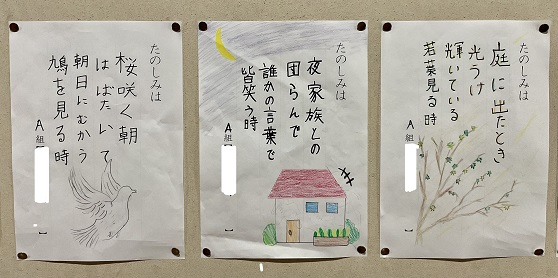 たのしみは
桜咲く朝
はばたいて
朝日にむかう
鳩を見る時
A組
たのしみは
夜家族との
団らんで
誰かの言葉で
皆笑う時
A組
たのしみは
庭に出たとき
光うけ
輝いている
若葉見る時
A組